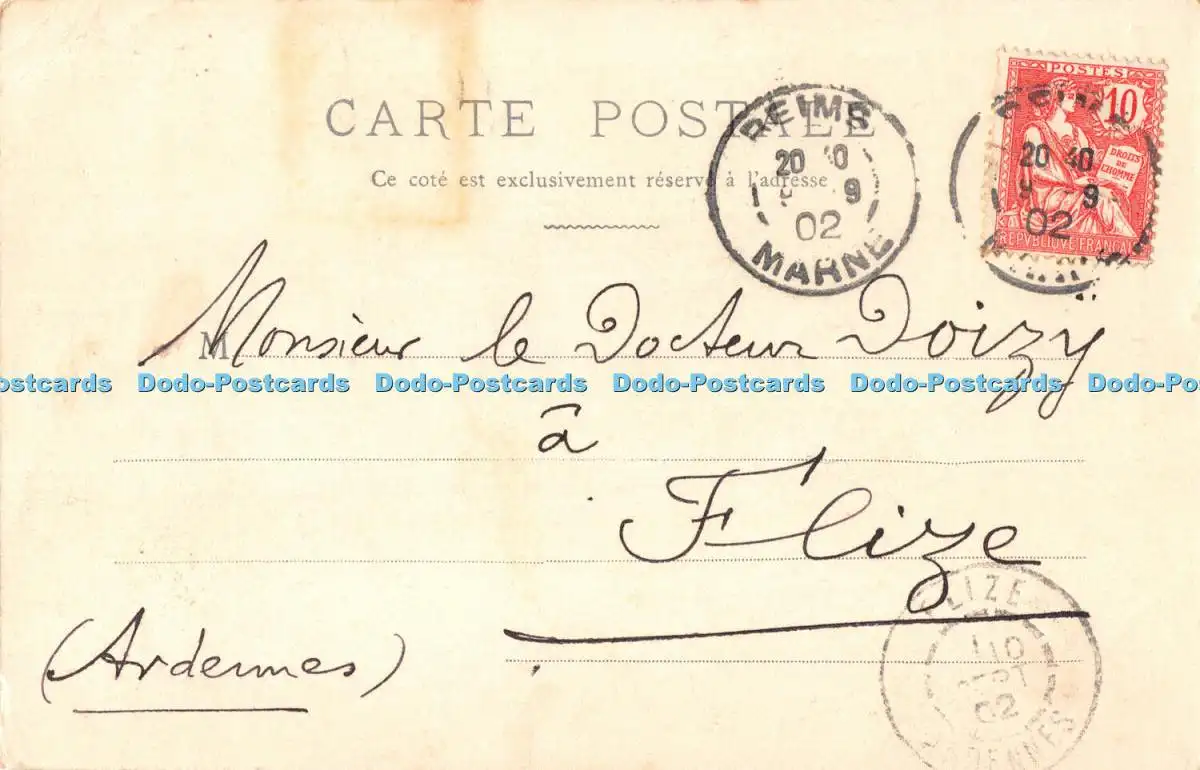 CARTE POSTALE
Ce coté est exclusivement réservé à l'adresse
REIMS
20 40
9 - 9
02
MARNE
POSTES
10
DROITS
DE
L'HOMME
20 40
9 - 9
02
REPVBLIQVE FRANÇAI
M
Monsieur le Docteur Doizy
ostcards Dodo-Postcards Dodo-Postcards Dodo-Postcards Dodo-Postcards Dodo-Po
à
Flize
(Ardennes)
LIZE
10
02
ARDENNES